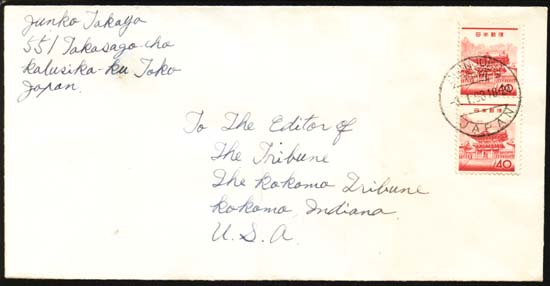 Junko Takaya
551 Takasago cho
Katusika-ku Toko
Japan.
日本郵便
40
JAPAN
日本郵便
40
To The Editor of
The Tribune
The Kokomo Tribune
Kokomo, Indiana
U.S.A.